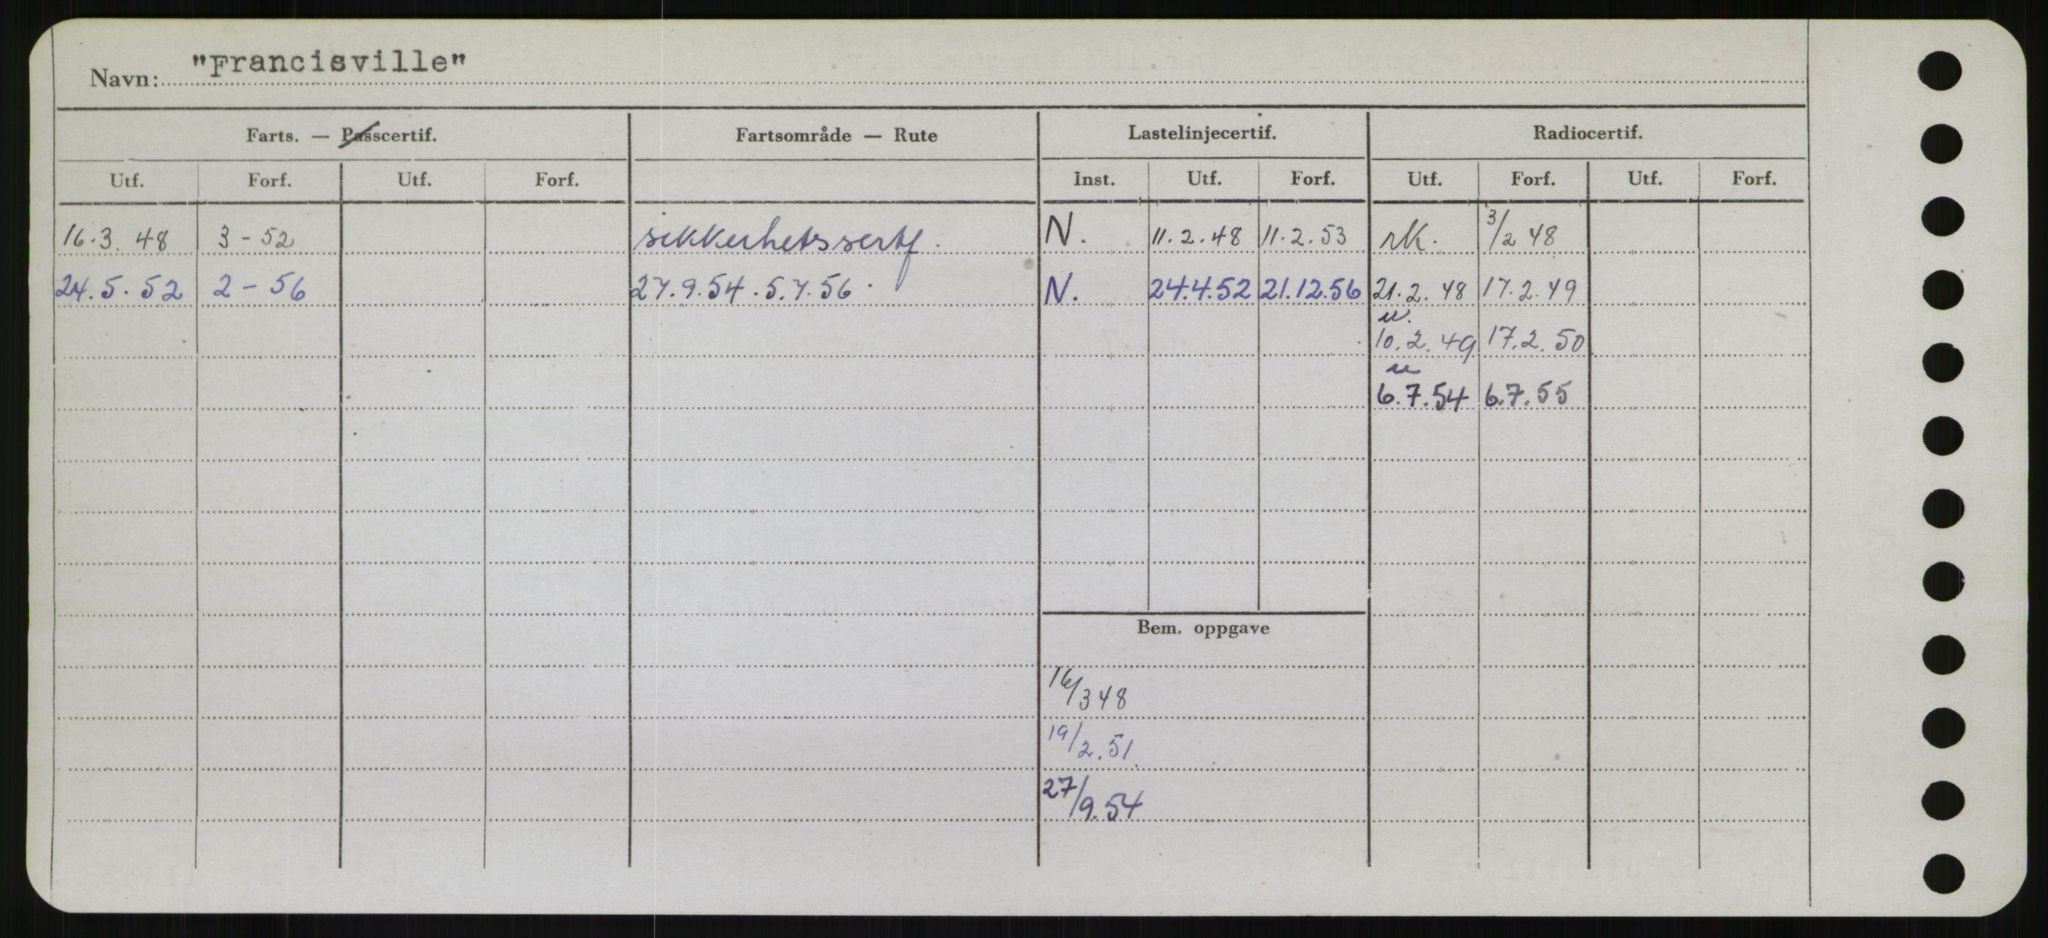 Navn: "Francisville"
Farts. — Passcertif. Fartsområde — Rute Lastelinjecertif. Radiocertif.
Utf. Forf. Utf. Forf. Inst. Utf. Forf. Utf. Forf. Utf. Forf.
16.3.48 3-52 sikkerhetssertf. N. 11.2.48 11.2.53 rk. 3/2 48
24.5.52 2-56 27.9.54. 5.7.56. N. 24.4.52 21.12.56 21.2.48 17.2.49
10.2.49 17.2.50
6.7.54 6.7.55
Bem. oppgave
16/3 48
19/2.51.
27/9.54